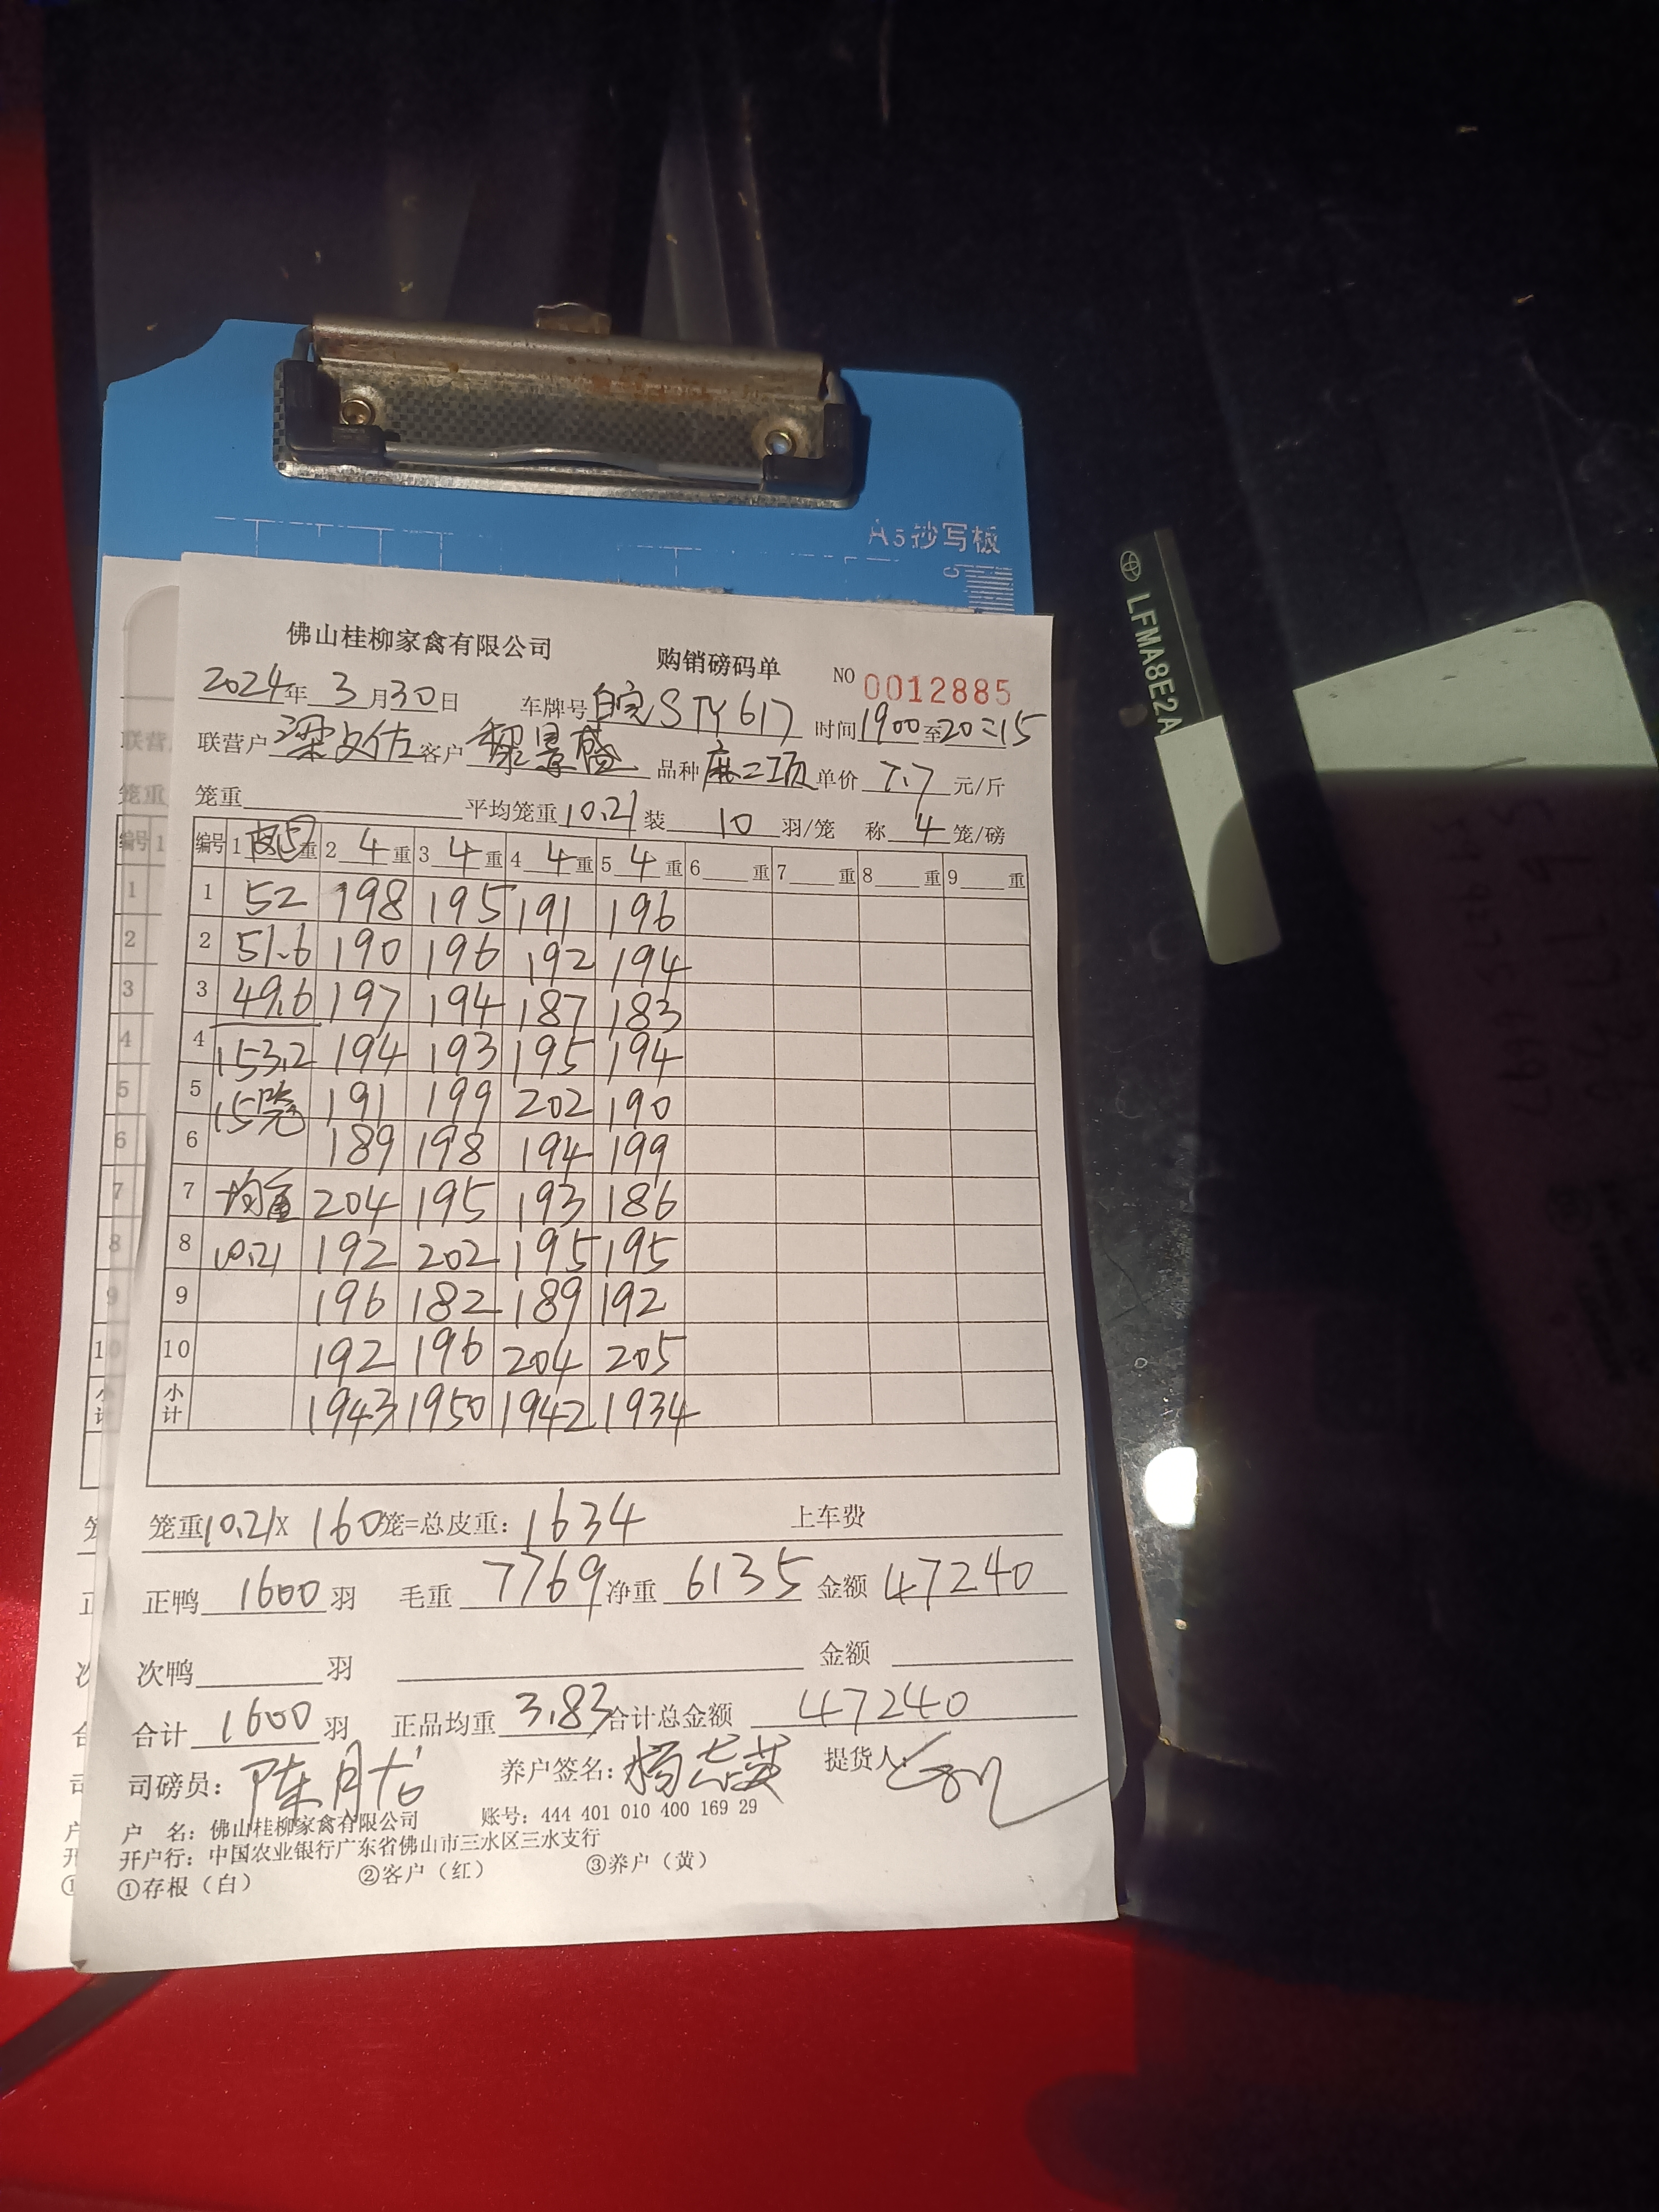 A5抄写板
LFMA8E2A
佛山桂柳家禽有限公司 购销磅码单 NO 0012885
2024年 3月30日 车牌号 皖STY617 时间1900至20:15
联营户 梁文佐 客户 黎景盛 品种 麻二项 单价 7.7 元/斤
笼重 平均笼重 10.21 装 10 羽/笼 称 4 笼/磅
编号 1 5重 2 4 重 3 4 重 4 4 重 5 4 重 6 重 7 重 8 重 9 重
1 52 198 195 191 196
2 51.6 190 196 192 194
3 49.6 197 194 187 183
4 153.2 194 193 195 194
5 15笼 191 199 202 190
6 189 198 194 199
7 均重 204 195 193 186
8 10.21 192 202 195 195
9 196 182 189 192
10 192 196 204 205
小计 1943 1950 1942 1934
笼重10.21X 160笼=总皮重: 1634 上车费
正鸭 1600 羽 毛重 7769 净重 6135 金额 47240
次鸭 羽 金额
合计 1600 羽 正品均重 3.83 合计总金额 47240
司磅员: 陈月龙 养户签名: 杨志英 提货人:
户 名: 佛山桂柳家禽有限公司 账号: 444 401 010 400 169 29
开户行: 中国农业银行广东省佛山市三水区三水支行
①存根（白） ②客户（红） ③养户（黄）